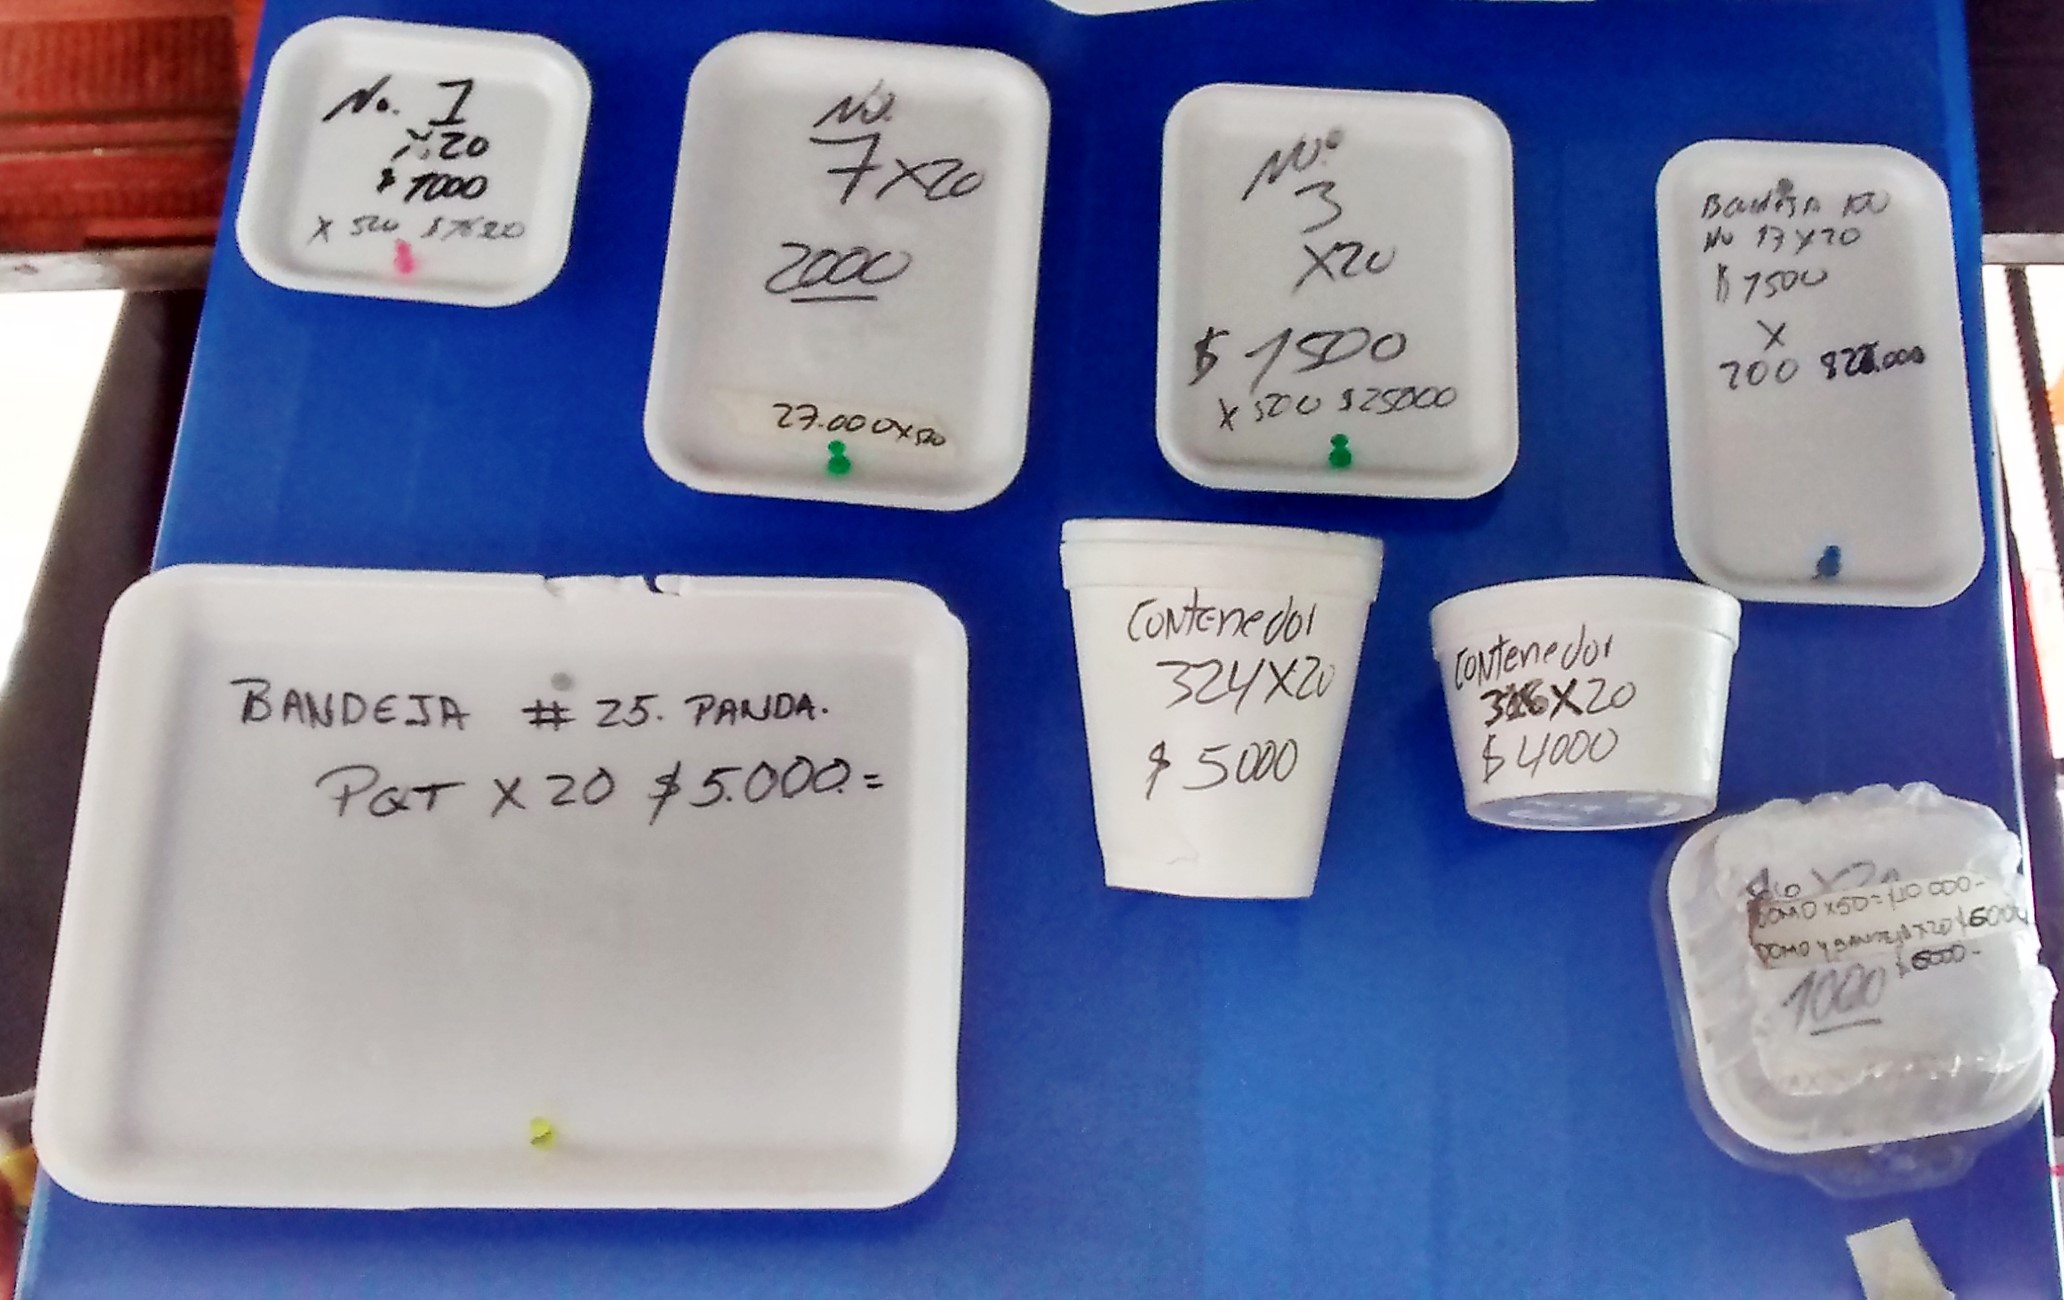 No. 1
X20
$ 1000
X 500
No.
7 X20
2000
27.000 X 500
No.
3
X20
$ 1500
X 500 $25000
Bandeja
No 17 X20
$ 1500
X
BANDEJA # 25. PANDA.
PQT X 20 $5.000=
Contenedor
324 X20
$ 5000
Contenedor
X20
$ 4000
X20
DOMO X50= $10 000-
DOMO Y BANDEJA X20 $6000
$6000-
1000